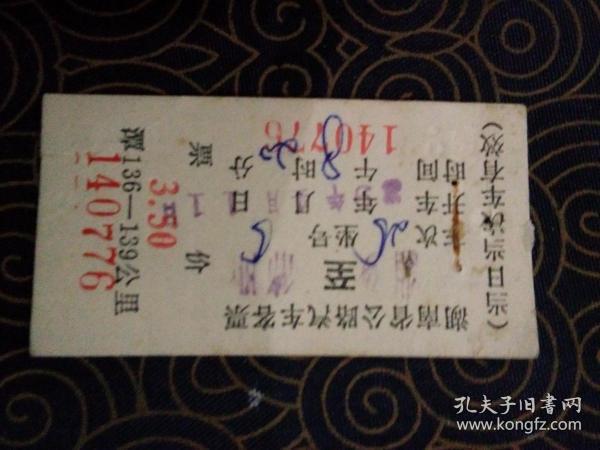 湖南省公路汽车客票
至
车次 坐号
开车 年 月 日
时间 午 8时20分
票价
3.50
潭136—139公里
140776
140776
(当日当次车有效)
孔夫子旧书网
www.kongfz.com